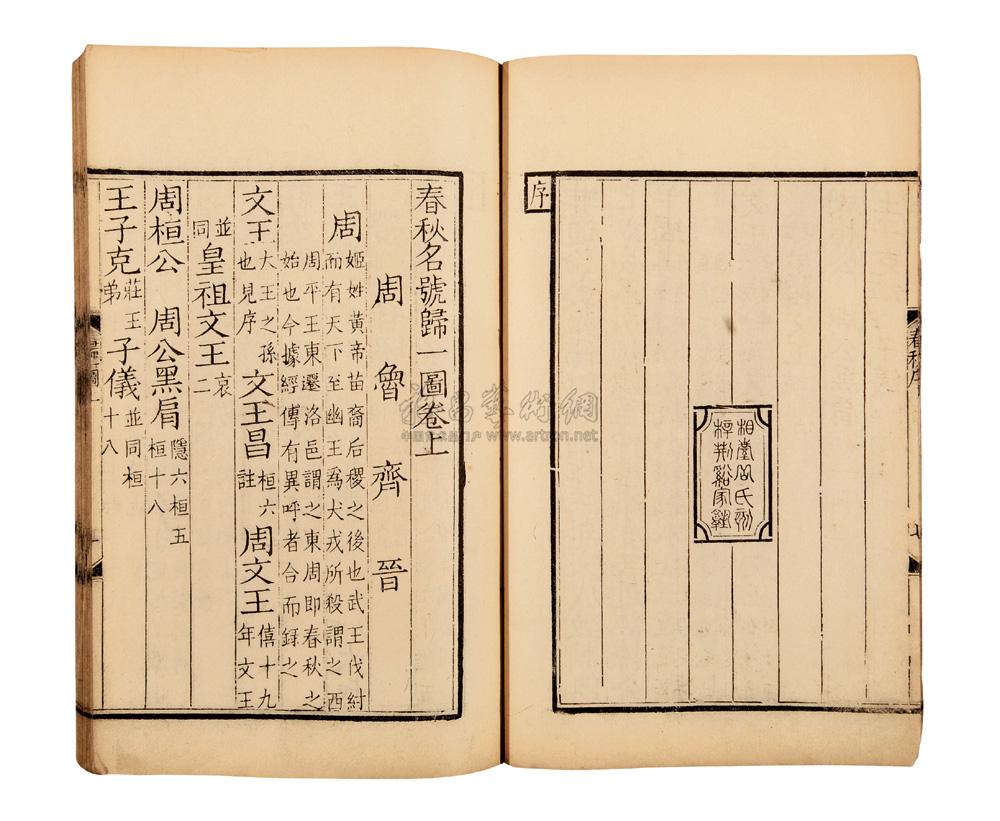 春秋序
相臺岳氏刻
梓荆谿家塾
序
春秋名號歸一圖卷上
周 魯 齊 晉
周
姬姓黃帝苗裔后稷之後也武王伐紂
而有天下至幽王為犬戎所殺謂之西
周平王東遷洛邑謂之東周即春秋之
始也今據經傳有異呼者合而録之
文王
大王之孫
也見序
文王昌
桓六
註
周文王
僖十九
年文王
並
同
皇祖文王
哀
二
周桓公 周公黑肩
隱六桓五
桓十八
王子克
莊王
弟
子儀
並同桓
十八
雅昌藝術網
www.artron.net